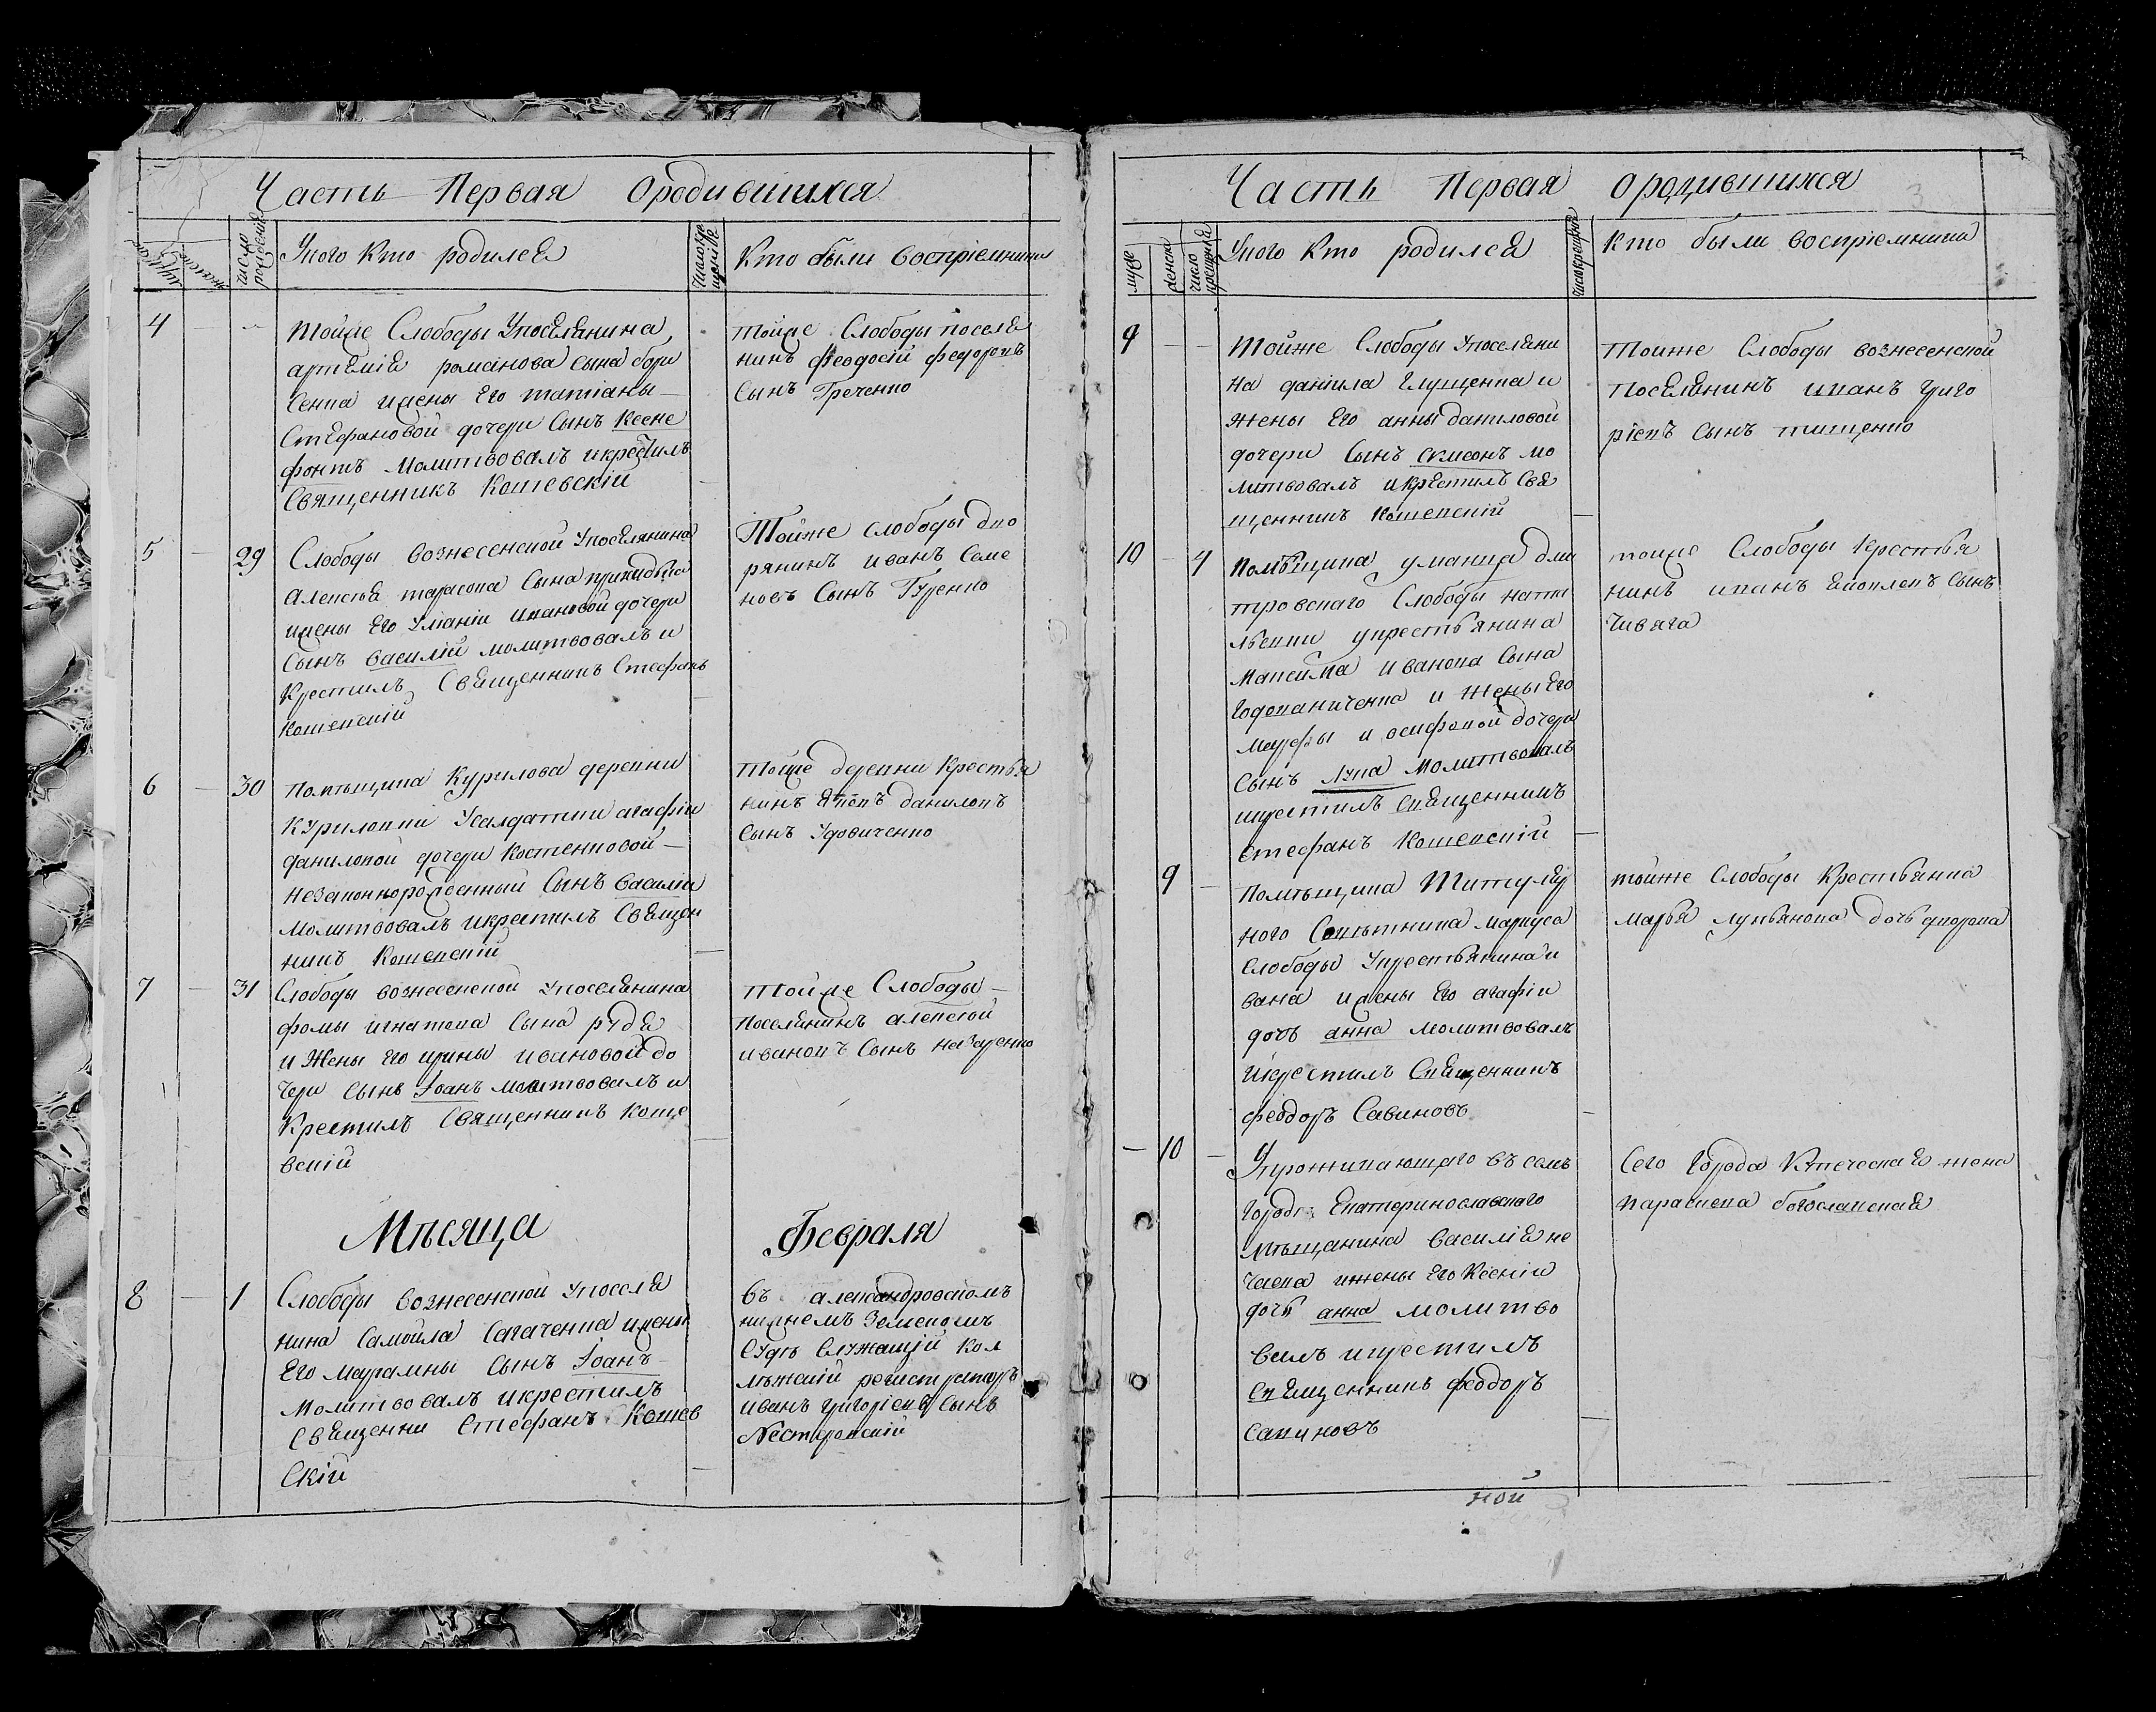 Часть Первая Ородившихся
число рожденія
Укого Кто родился
Кто были воспріемники
4
тойже Слободы Упоселянина
артемія романова Сына бори
Сенка ижены Его татіаны
Стефановой дочери Сынъ Ксене
фонтъ Молитвовалъ икрестилъ
Священникъ Кошевскій
тойже Слободы поселя
нинъ феодосій федоровъ
Сынъ Греченко
5 29
Слободы вознесенской Упоселянина
Алексѣя тарасова Сына
ижены Его Уліаніи ивановой дочери
Сынъ василій молитвовалъ и
Крестилъ Священникъ Стефанъ
Кошевскій
Тойже слободы дво
рянинъ иванъ Семе
новъ Сынъ Гуренко
6 30
Помѣщика Курилова деревни
Куриловки Усалдатки агафіи
даниловой дочери Костенковой
незаконнорожденный Сынъ василій
Молитвовалъ икрестилъ Священ
никъ Кошевскій
тойже деревни Крестья
нинъ данилов
Сынъ Удовиченко
7 31
Слободы вознесенской Упоселянина
фомы игнатова Сына рудя
и Жены Его ирины ивановой до
чери Сынъ Іоанъ молитвовалъ и
Крестилъ Священникъ коше
вскій
Тойже Слободы
Поселянинъ алексѣй
ивановъ Сынъ назаренко
Мѣсяца Февраля
8 1
Слободы вознесенской Упоселя
нина Самойла Сагаченка ижены
Его марамны Сынъ Іоанъ
Молитвовалъ икрестилъ
Священни Стефанъ Кошев
Скій
въ александровскомъ
нижнемъ Земскомъ
Судѣ Служащій Кол
лѣжскій регистраторъ
иванъ григоріевъ Сынъ
Нестеровскій
Часть Первая Ородившихся
3
муже
женска
число крещенія
Укого Кто родился
число крещенія
Кто были воспріемники
9
Тойже Слободы Упоселяни
на даніила Глущенка и
Жены Его анны даниловой
дочери Сынъ Симеонъ мо
литвовалъ икрестилъ Свя
щенникъ Кошевскій
Тоиже Слободы вознесенской
Поселянинъ иванъ григо
ріевъ Сынъ тищенко
10 4
Помѣщика уманца дми
тровскаго Слободы ната
льевки укрестьянина
Максима иванова Сына
Годованиченка и Жены Его
марфы и осифовой дочери
Сынъ Лука Молитвовалъ
икрестилъ Священникъ
Стефанъ Кошевскій
тоиже Слободы Крестья
нинъ иванъ Сынъ
Чивяга
9
Помѣщика Титуляр
ного Совѣтника маркуса
Слободы Укрестьянина и
вана ижены Его агафіи
дочь анна молитвовалъ
Икрестилъ Священникъ
Феодоръ Савиновъ
тойже Слободы Крестьянка
марья лукьянова дочь
10
Упроживающаго въ семъ
Городѣ Екатеринославскаго
Мѣщанина василія не
чаева ижены Его Ксеніи
дочь анна молитво
валъ икрестилъ
Священникъ Феодоръ
Савиновъ
Сего Города Купеческа Его жена
параскева богославская
ной